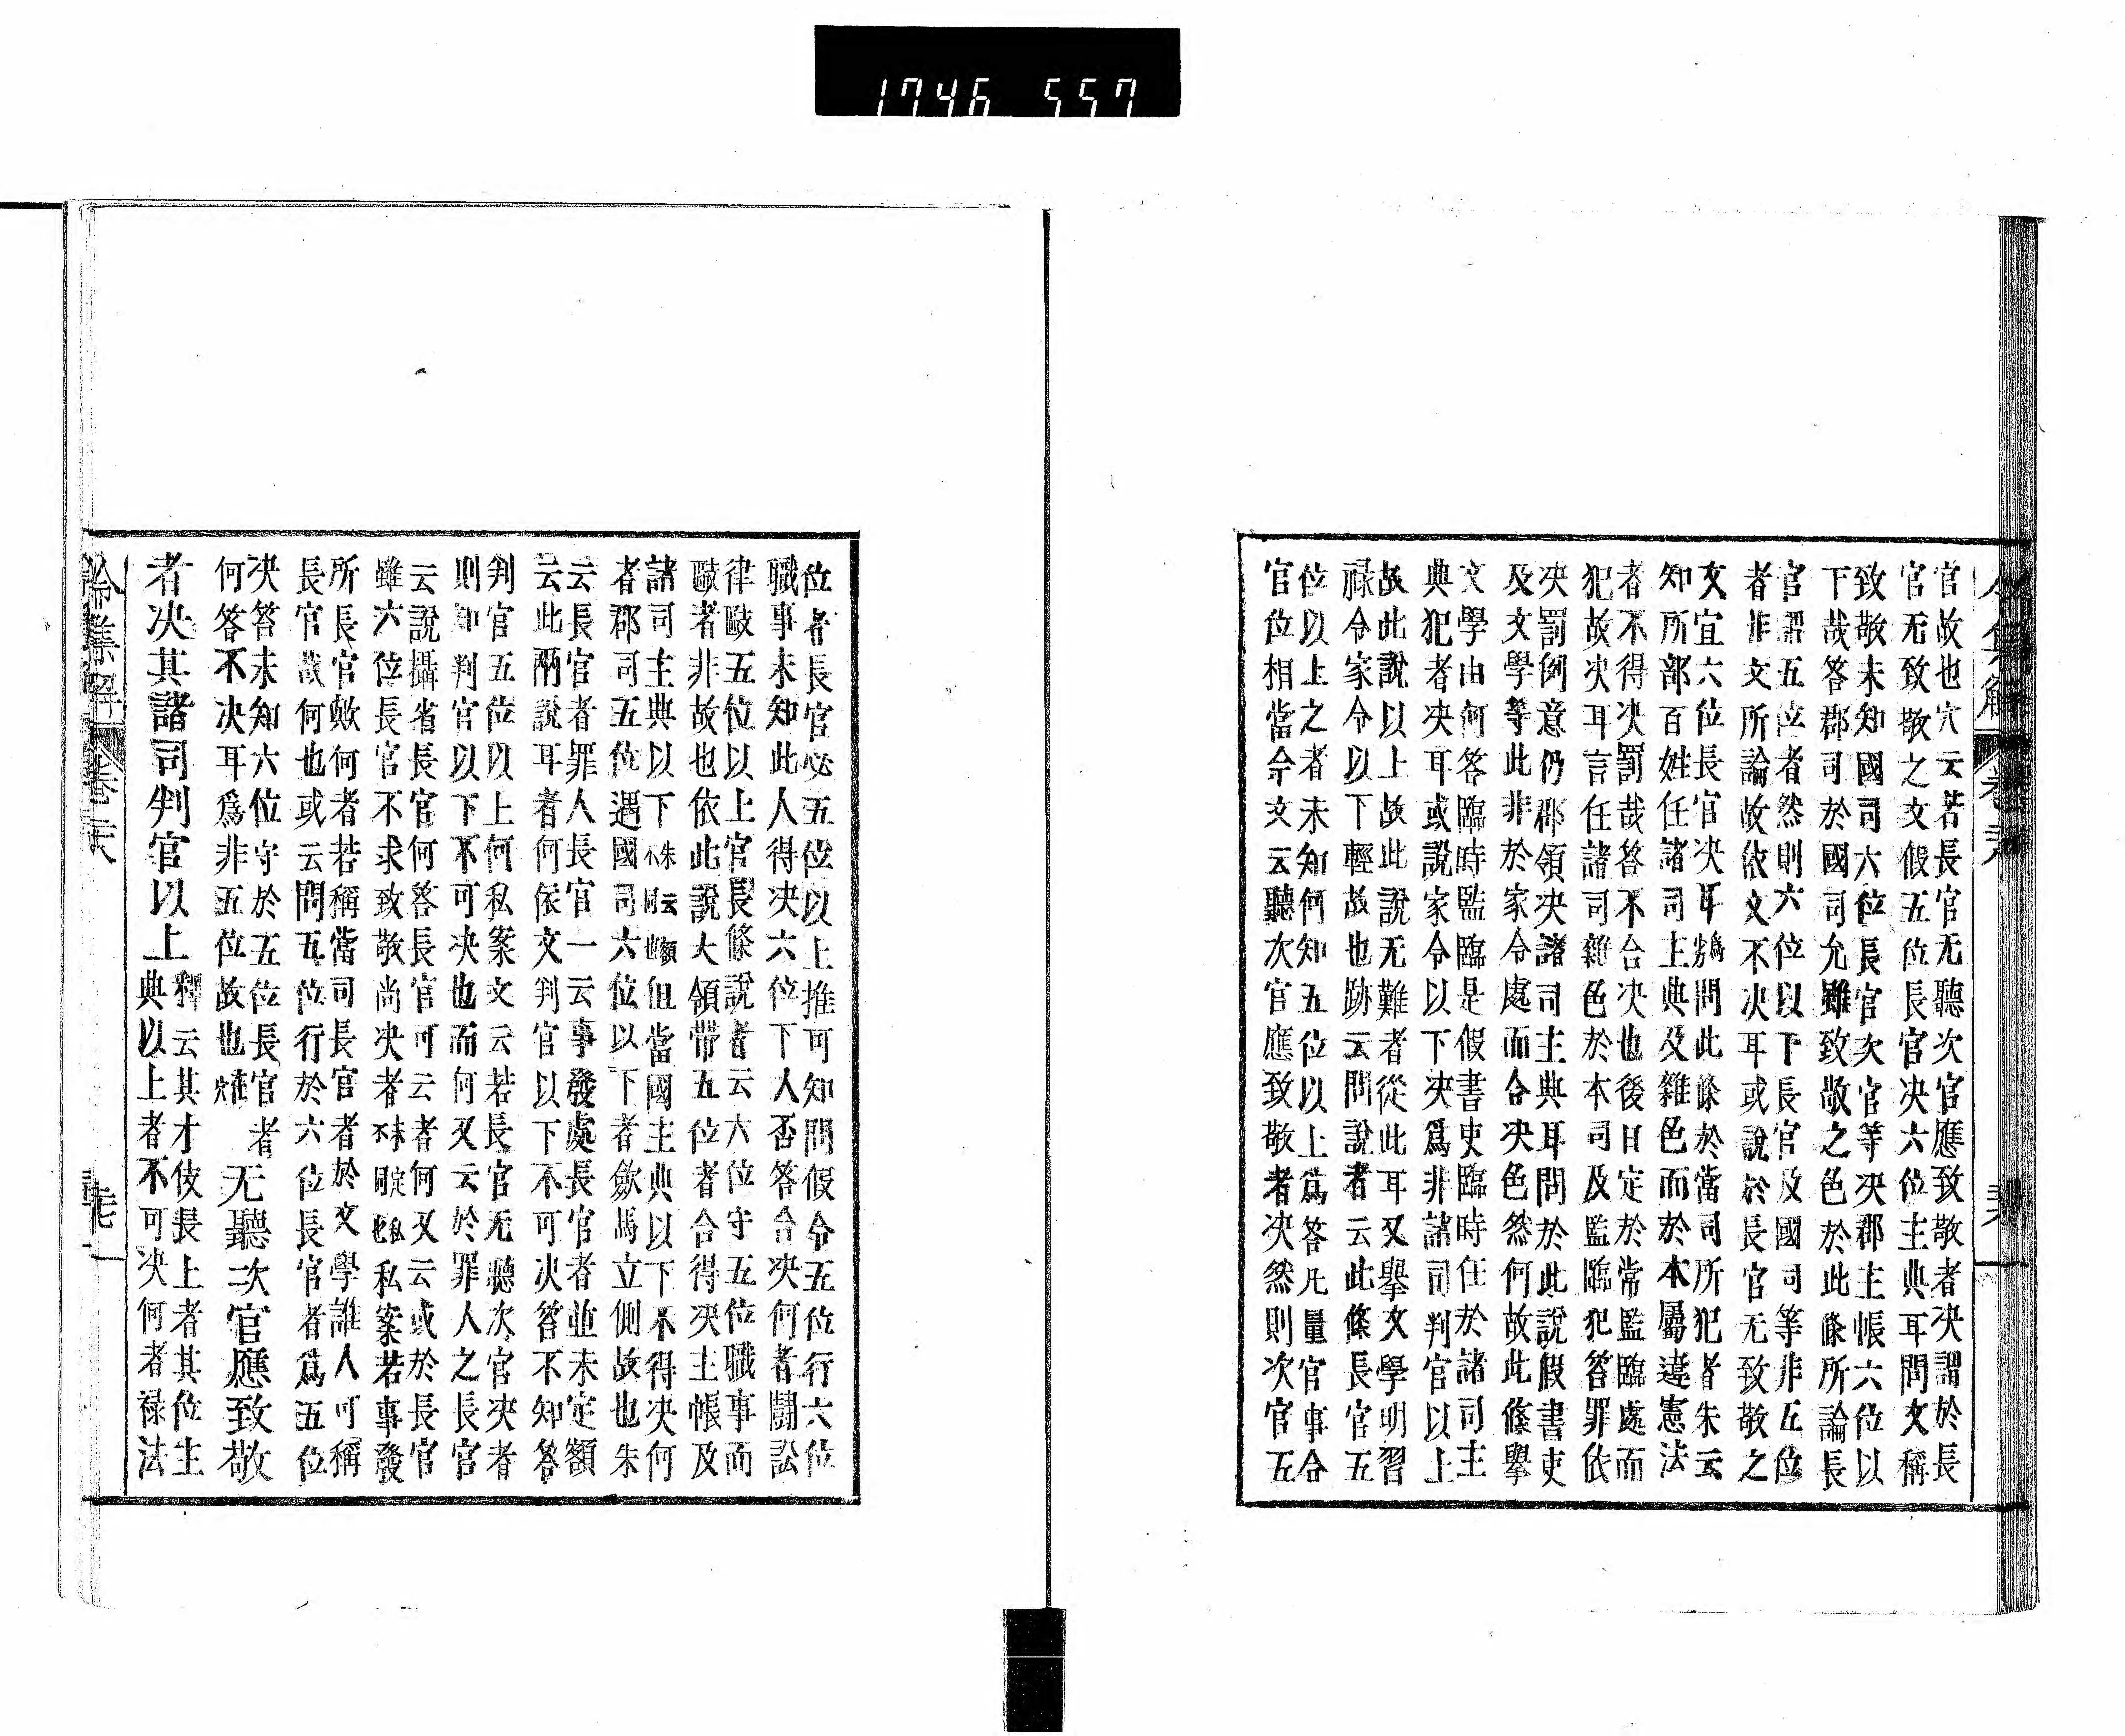 1746 557
官故也穴云若長官无聽次官應致敬者决謂於長
官无致敬之文假五位長官决六位主典耳問文稱
致敬未知國司六位長官次官等决郡主帳六位以
下哉答郡司於國司允雖致敬之色於此條所論長
官謂五位者然則六位以下長官及國司等非五位
者非文所論故依文不决耳或說於長官无致敬之
文宜六位長官决耳爲問此條於當司所犯者朱云
知所部百姓任諸司主典及雜色而於本屬違憲法
者不得决罰哉答不合决也後日定於常監臨處而
犯故决耳言任諸司雜色於本司及監臨犯答罪依
决罰例意仍郡領决諸司主典耳問於此說假書吏
及文學等此非於家令處而合决色然何故此條擧
文學由何答臨時監臨是假書吏臨時任於諸司主
典犯者决耳或說家令以下决爲非諸司判官以上
故此說以上故此說无難者從此耳又擧文學明習
祿令家令以下輕故也跡云問說者云此條長官五
位以上之者未知何知五位以上爲答凡量官事合
官位相當今文云聽次官應致敬者决然則次官五
位者長官必五位以上推可知問假令五位行六位
職事未知此人得决六位下人否答合决何者鬪訟
律毆五位以上官長條說者云六位守五位職事而
毆者非故也依此說大領帶五位者合得决主帳及
諸司主典以下朱云額不同也但當國主典以下不得决何
者郡司五位遇國司六位以下者歛馬立側故也朱
云長官者罪人長官一云事發處長官者並未定額
云此兩說耳者何依文判官以下不可决答不知答
判官五位以上何私案文云若長官无聽次官决者
則知判官以下不可决也而何又云於罪人之長官
云說攝省長官何答長官可云者何又云或於長官
雖六位長官不求致敬尚决者未定不同也私私案若事發
所長官歟何者若稱當司長官者於文學誰人可稱
長官哉何也或云問五位行於六位長官者爲五位
决答未知六位守於五位長官者
何答不决耳爲非五位故也 无聽次官應致敬
者决其諸司判官以上釋云其才伎長上者其位主
典以上者不可决何者祿法